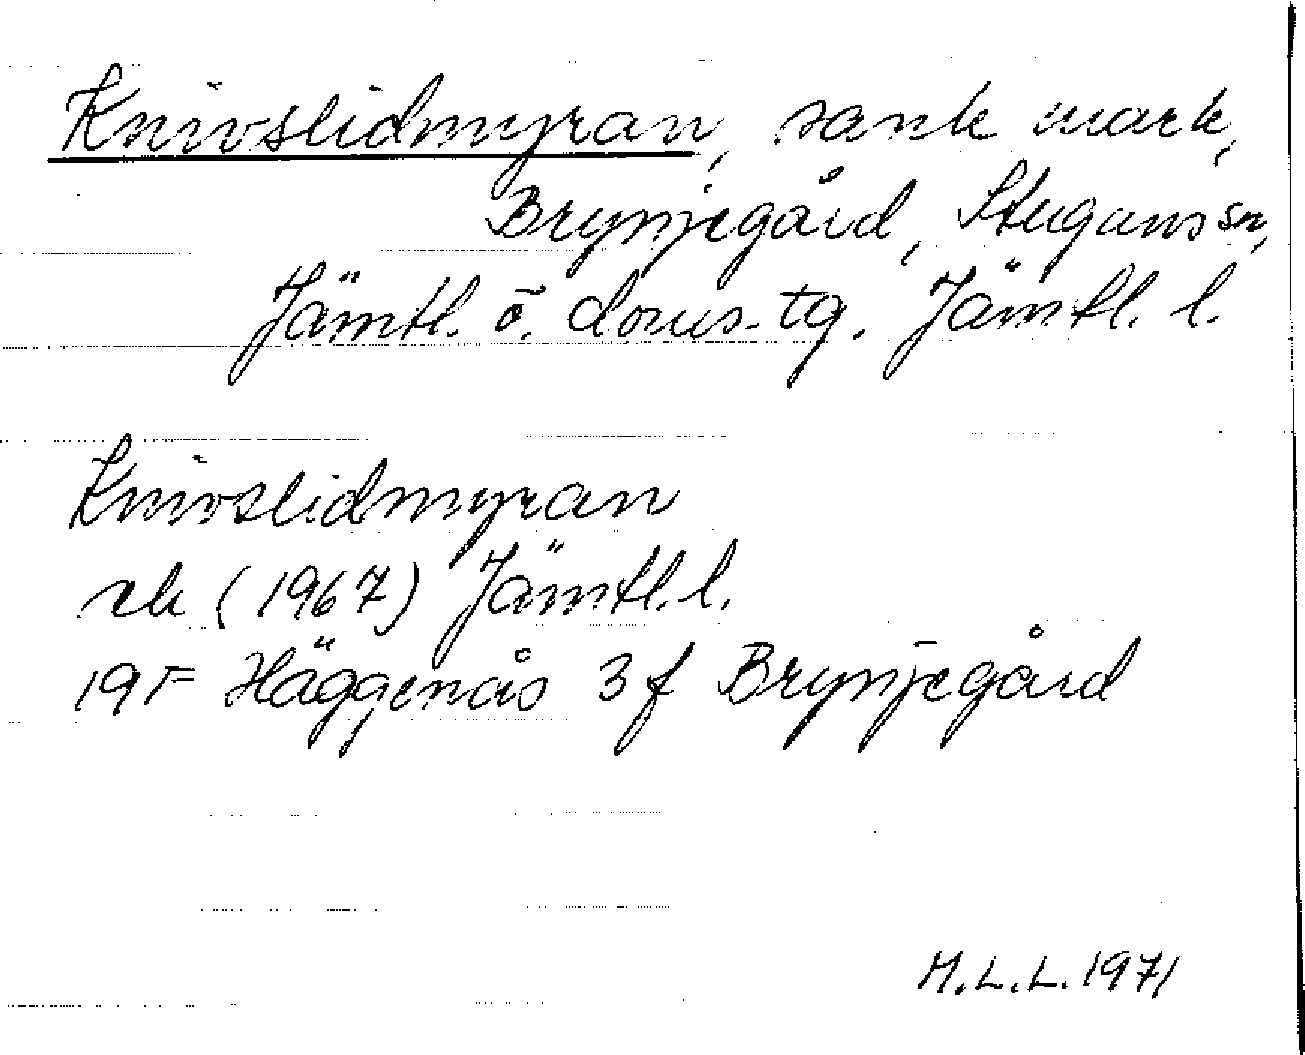 Knivslidmyran, sank mark,
Brynjegård, Stuguns sn,
Jämtl. ö. doms. tg. Jämtl. l.
Knivslidmyran
ek (1967) Jämtl. l.
19F Häggenås 3f Brynjegård
M.L.L. 1971